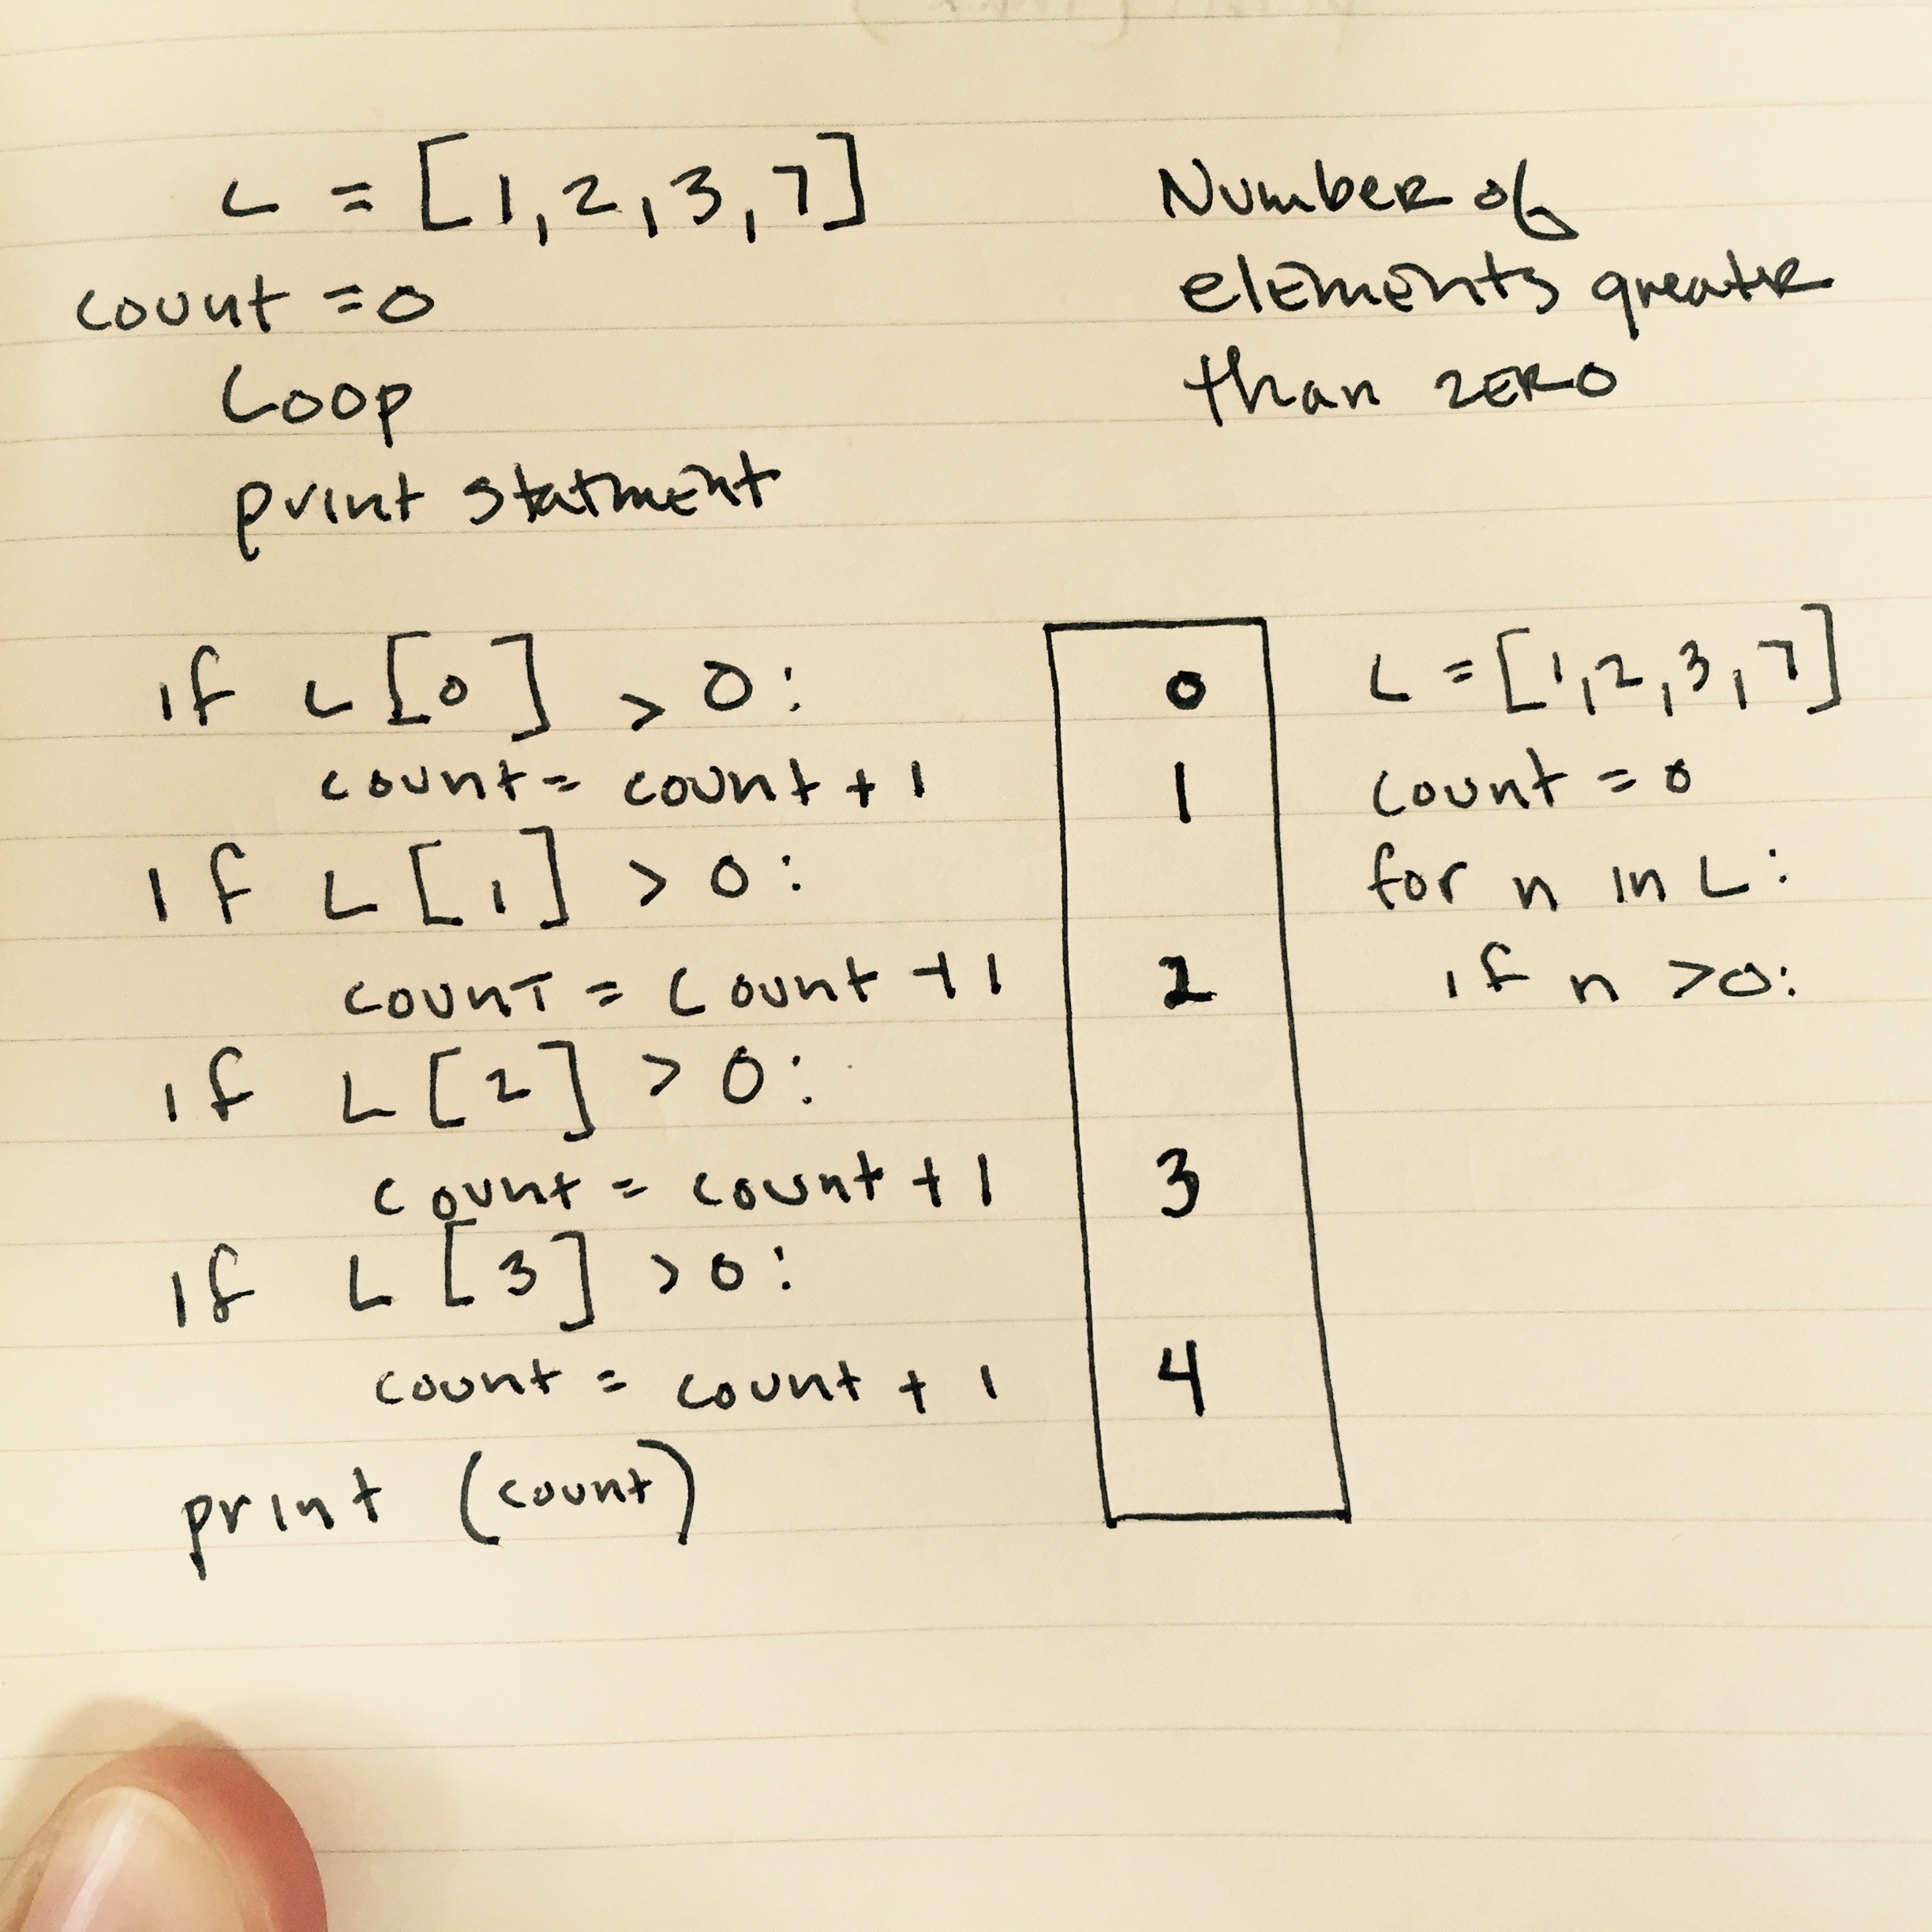 L = [1,2,3,7]
count = 0
Loop
print statment
Number of
elements greater
than zero
if L[0] > 0:
count = count + 1
if L[1] > 0:
count = count +1
if L[2] > 0:
count = count + 1
if L[3] > 0:
count = count + 1
print (count)
0
1
2
3
4
L = [1,2,3,7]
count = 0
for n in L:
if n > 0: